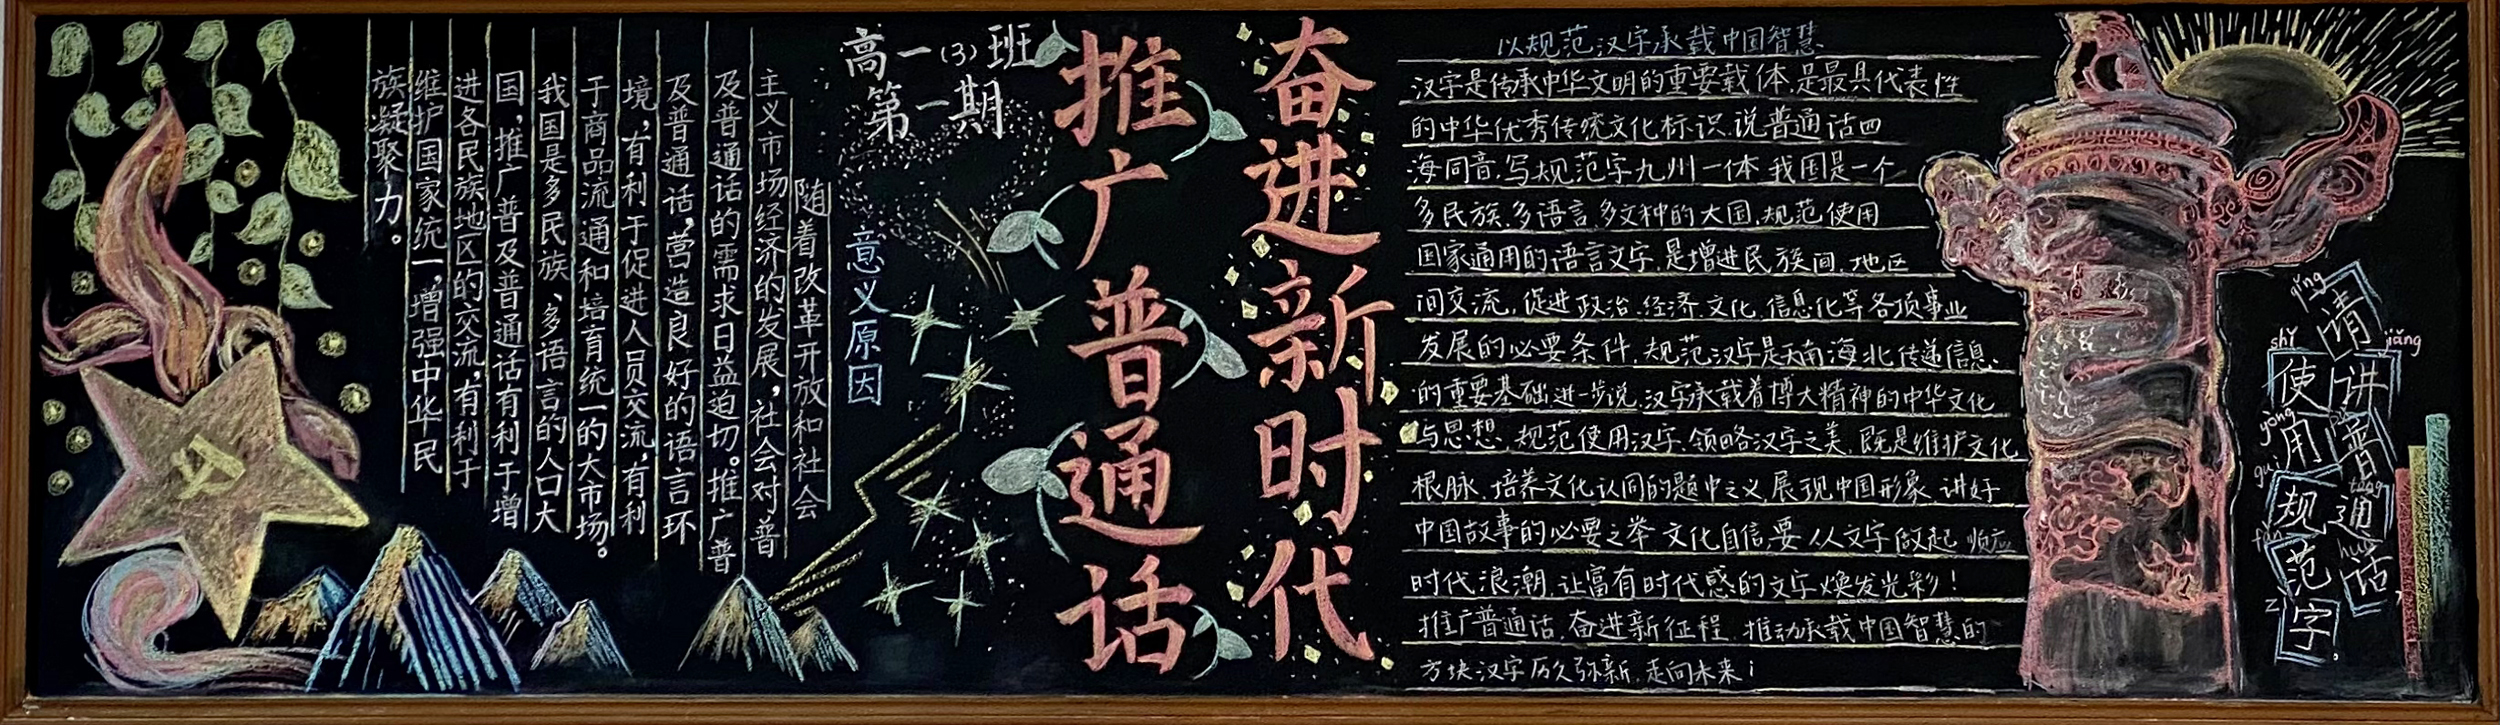 高一(3)班
第一期
推广普通话
奋进新时代
意义原因
随着改革开放和社会
主义市场经济的发展，社会对普
及普通话的需求日益迫切。推广普
及普通话，营造良好的语言环
境，有利于促进人员交流，有利
于商品流通和培育统一的大市场。
我国是多民族、多语言的人口大
国，推广普及普通话有利于增
进各民族地区的交流，有利于
维护国家统一，增强中华民
族凝聚力。
以规范汉字承载中国智慧
汉字是传承中华文明的重要载体,是最具代表性
的中华优秀传统文化标识,说普通话四
海同音,写规范字九州一体 我国是一个
多民族,多语言,多文种的大国,规范使用
国家通用的语言文字,是增进民族间,地区
间交流,促进政治,经济,文化,信息化等各项事业
发展的必要条件,规范汉字是天南海北传递信息,
的重要基础进一步说,汉字承载着博大精神的中华文化
与思想,规范使用汉字,领略汉字之美,既是维护文化
根脉,培养文化认同的题中之义,展现中国形象,讲好
中国故事的必要之举 文化自信,要从文字做起 顺应
时代浪潮,让富有时代感的文字焕发光彩！
推广普通话,奋进新征程,推动承载中国智慧的
方块汉字历久弥新,走向未来！
qǐng jiǎng pǔ tōng huà
请讲普通话
shǐ yòng guī fàn zì
使用规范字